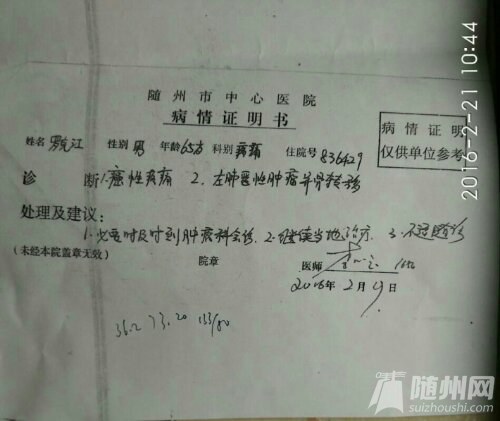 随州市中心医院
病情证明书
病情证明
仅供单位参考
姓名 江 性别 男 年龄 65岁 科别 疼痛 住院号 836429
诊 断 1.癌性疼痛 2、左肺恶性肿瘤并骨转移
处理及建议：
1.必要时及时到肿瘤科会诊. 2.继续当地治疗. 3.不适随诊
(未经本院盖章无效) 院章 医师
2016年2月 日
36.2 73.20 133/80
2016-2-21 10:44
随州网
suizhoushi.com